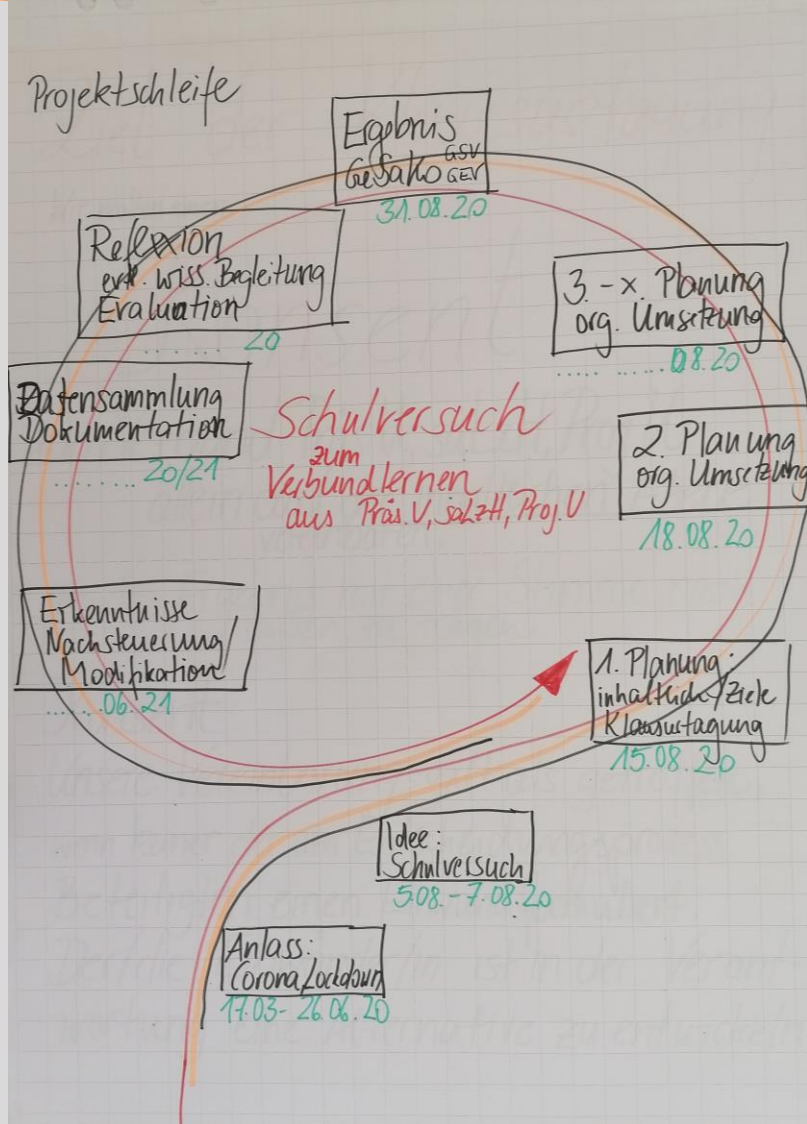 Projektschleife
Ergebnis
GeSaKo GSV
GEV
31.08.20
Reflexion
evtl. wiss. Begleitung
Evaluation
....... 20
3. - x. Planung
org. Umsetzung
..... ...... 08.20
Datensammlung
Dokumentation
........ 20/21
Schulversuch
zum
Verbundlernen
aus Präs.V, saLzH, Proj.V
2. Planung
org. Umsetzung
18.08.20
Erkenntnisse
Nachsteuerung/
Modifikation
..... 06.21
1. Planung:
inhaltlich/Ziele
Klausurtagung
15.08.20
Idee:
Schulversuch
5.08.-7.08.20
Anlass:
Corona Lockdown
17.03-26.06.20